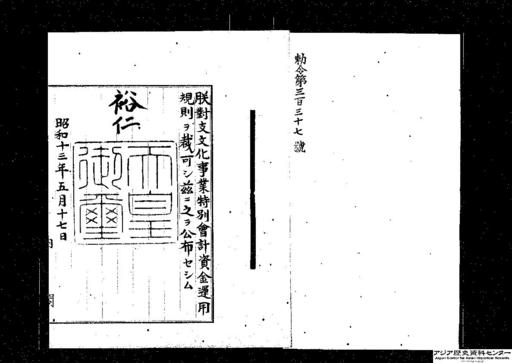 勅令第三百三十七號
朕對支文化事業特別會計資金運用
規則ヲ裁可シ茲ニ之ヲ公布セシム
裕仁
天皇
御璽
昭和十三年五月十七日
内閣
アジア歴史資料センター
Japan Center for Asian Historical Records